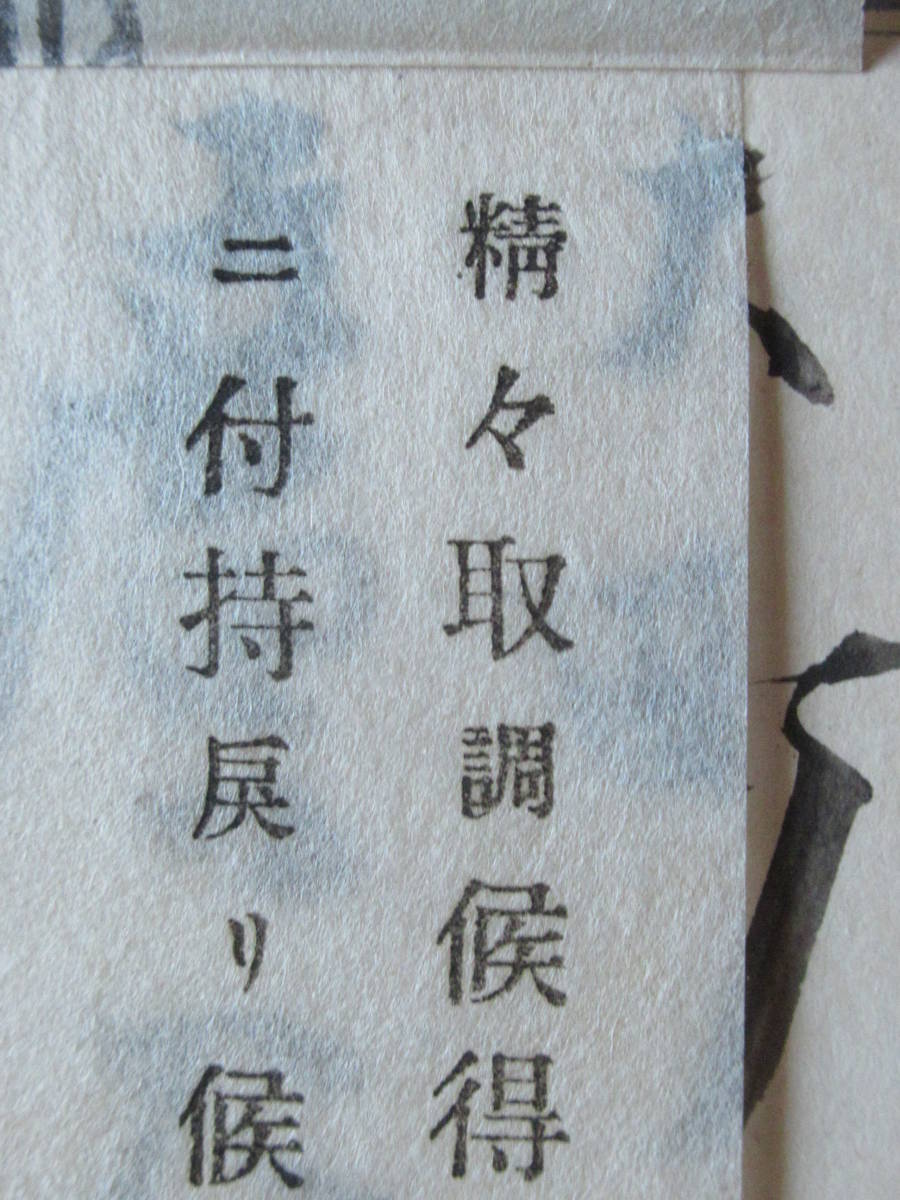 精々取調候得
ニ付持戻リ候